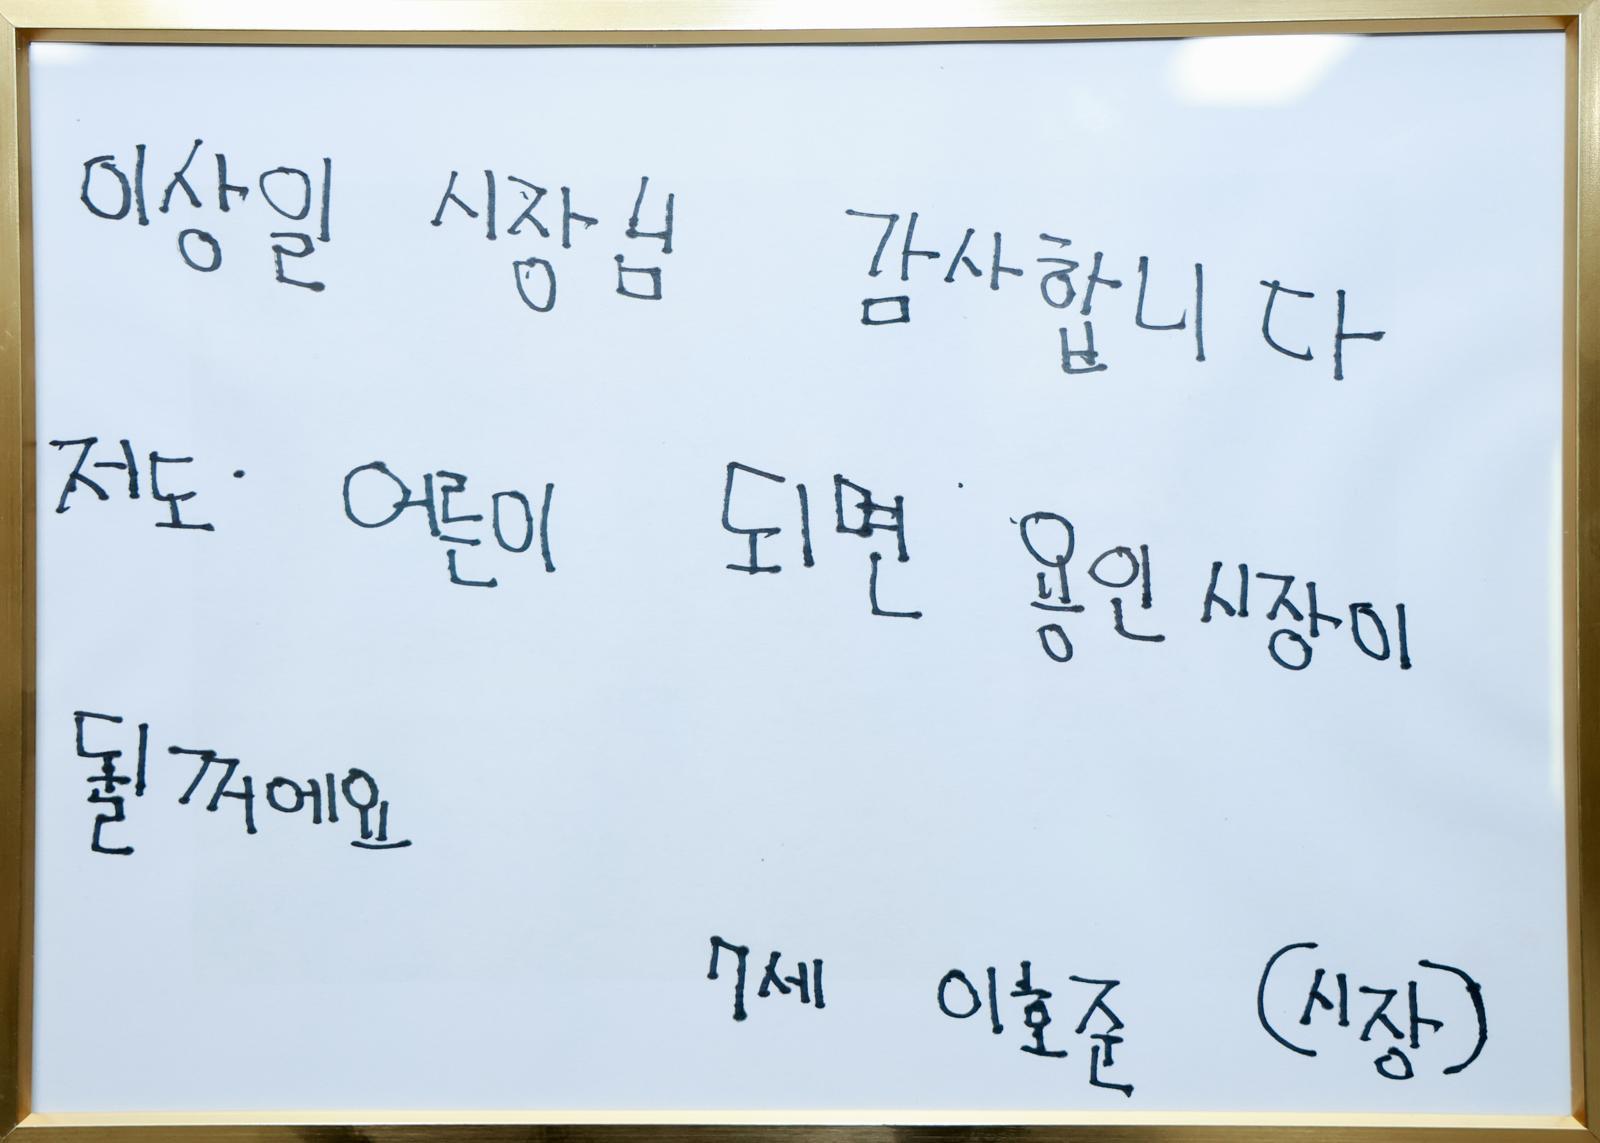 이상일 시장님 감사합니다
저도 어른이 되면 용인시장이
될꺼에요
7세 이호준 (시장)